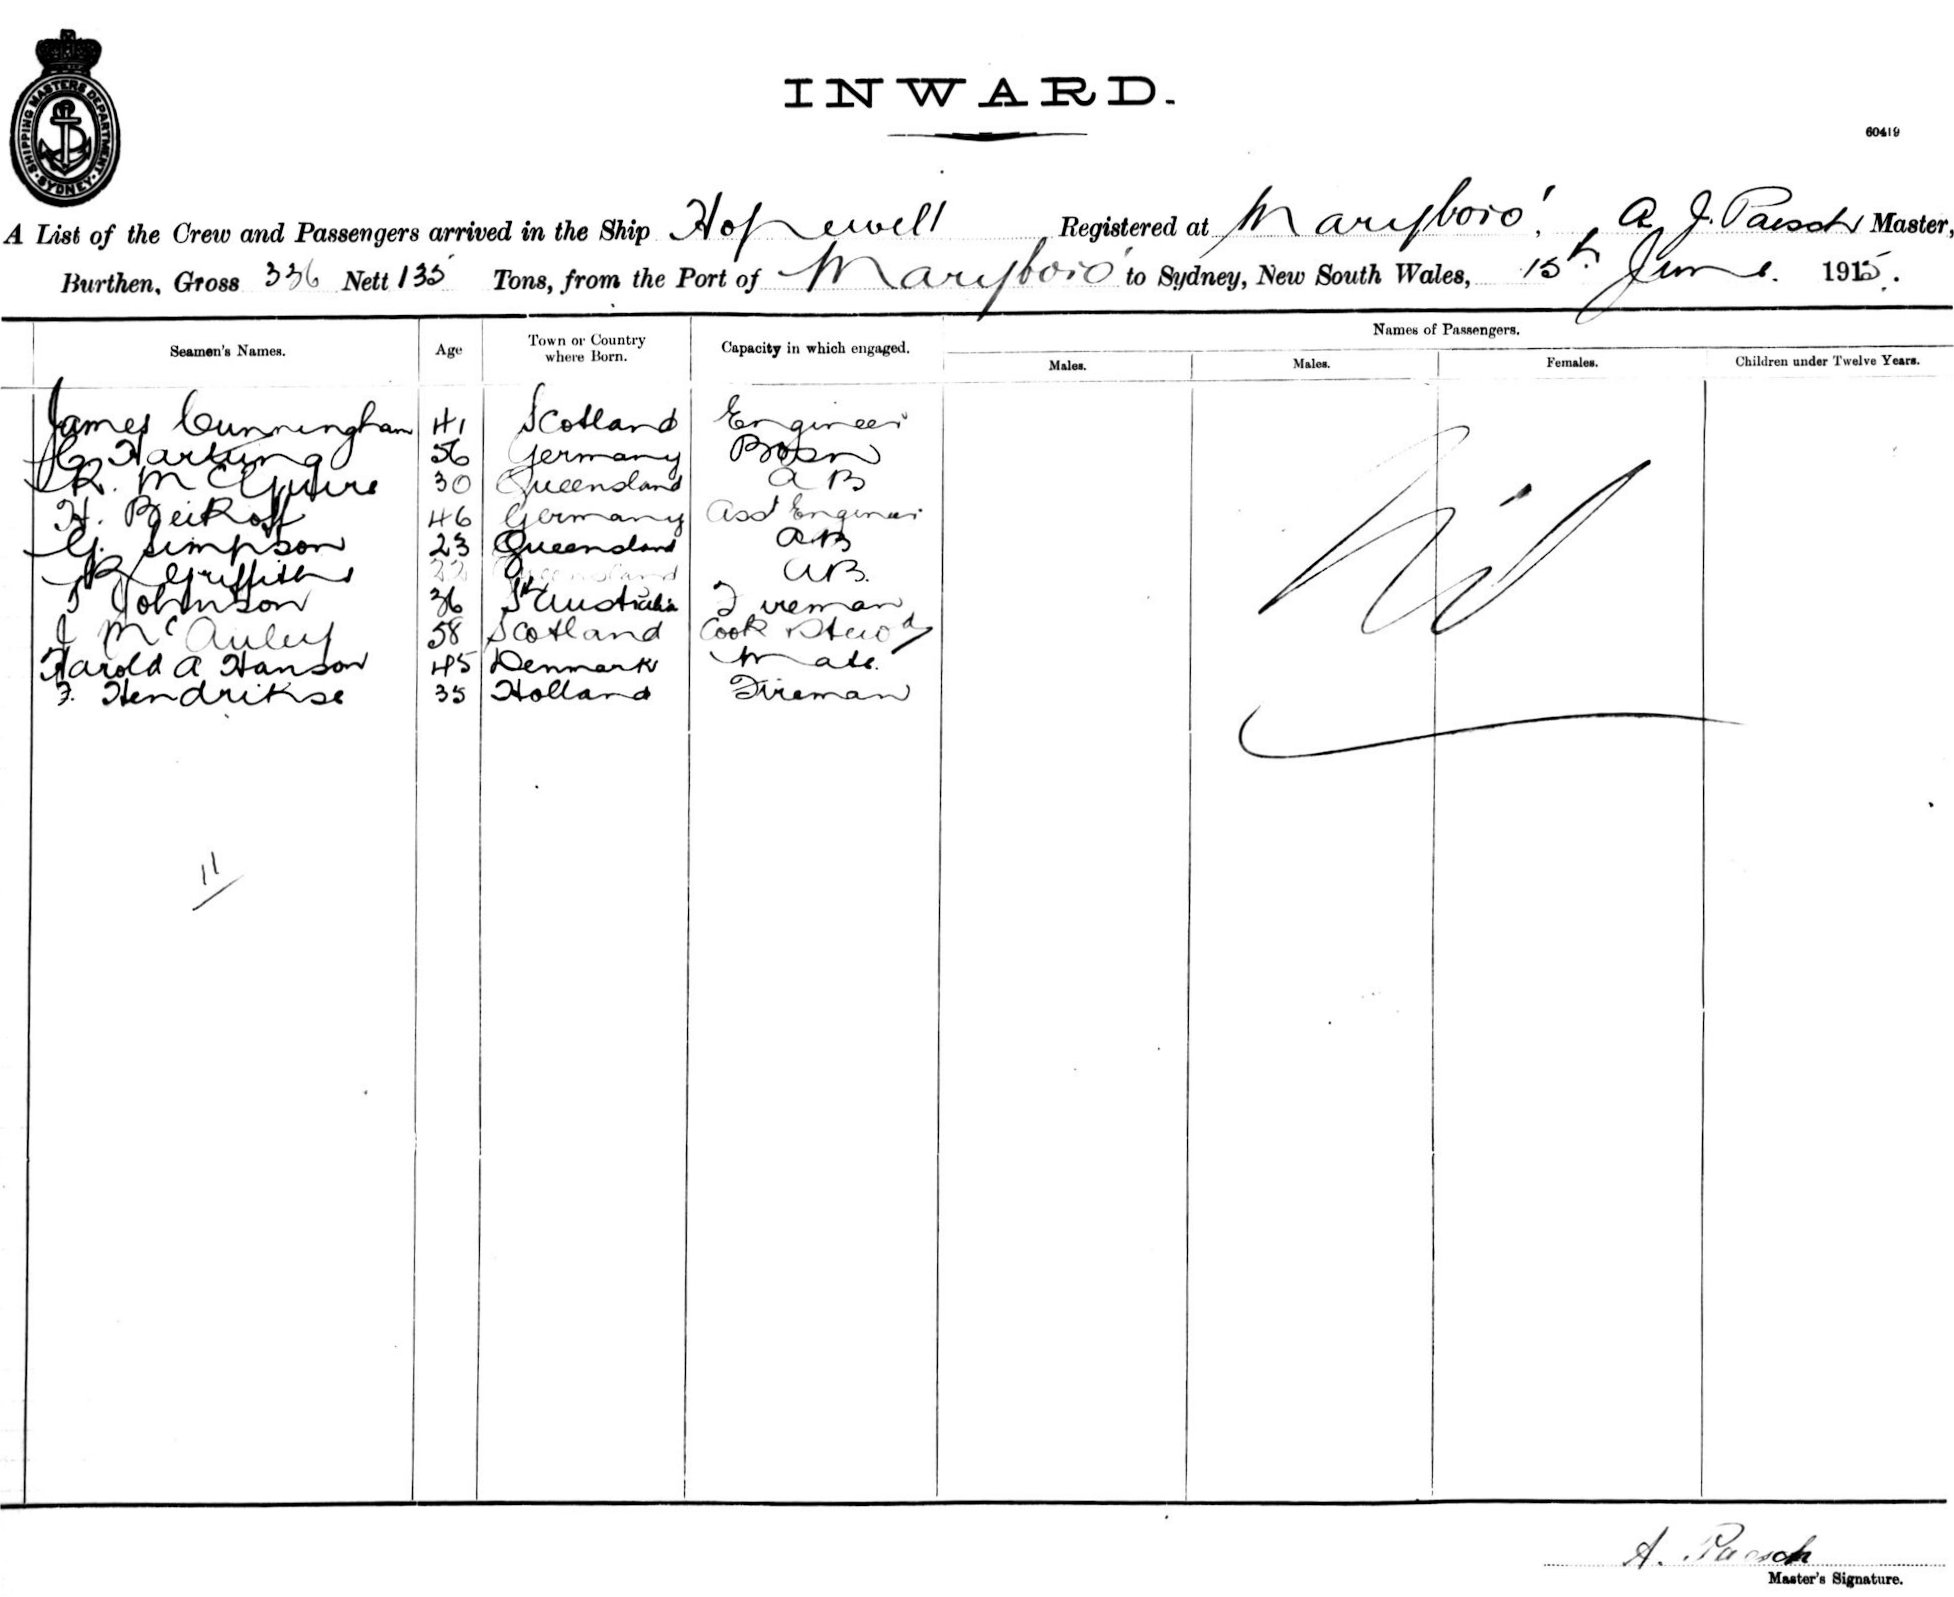 SHIPPING MASTERS DEPARTMENT
SYDNEY
INWARD.
60419
A List of the Crew and Passengers arrived in the Ship Hopewell Registered at Maryboro' A J. Paesch Master,
Burthen, Gross 336 Nett 135 Tons, from the Port of Maryboro' to Sydney, New South Wales, 15th June 1915.
Names of Passengers.
Seamen's Names. Age Town or Country where Born. Capacity in which engaged. Males. Males. Females. Children under Twelve Years.
James Cunningham 41 Scotland Engineer
C Hartung 56 Germany Bosn
R. McGuire 30 Queensland AB
H. Beikoff 46 Germany Asst Engineer
G. Simpson 23 Queensland AB
R Griffiths 22 Queensland AB.
Johnson 36 Sth Australia Fireman
J McAuley 58 Scotland Cook & Stewd
Harold A Hanson 45 Denmark Mate.
F. Hendrikse 35 Holland Fireman
Nil
11
A. Paesch
Master's Signature.